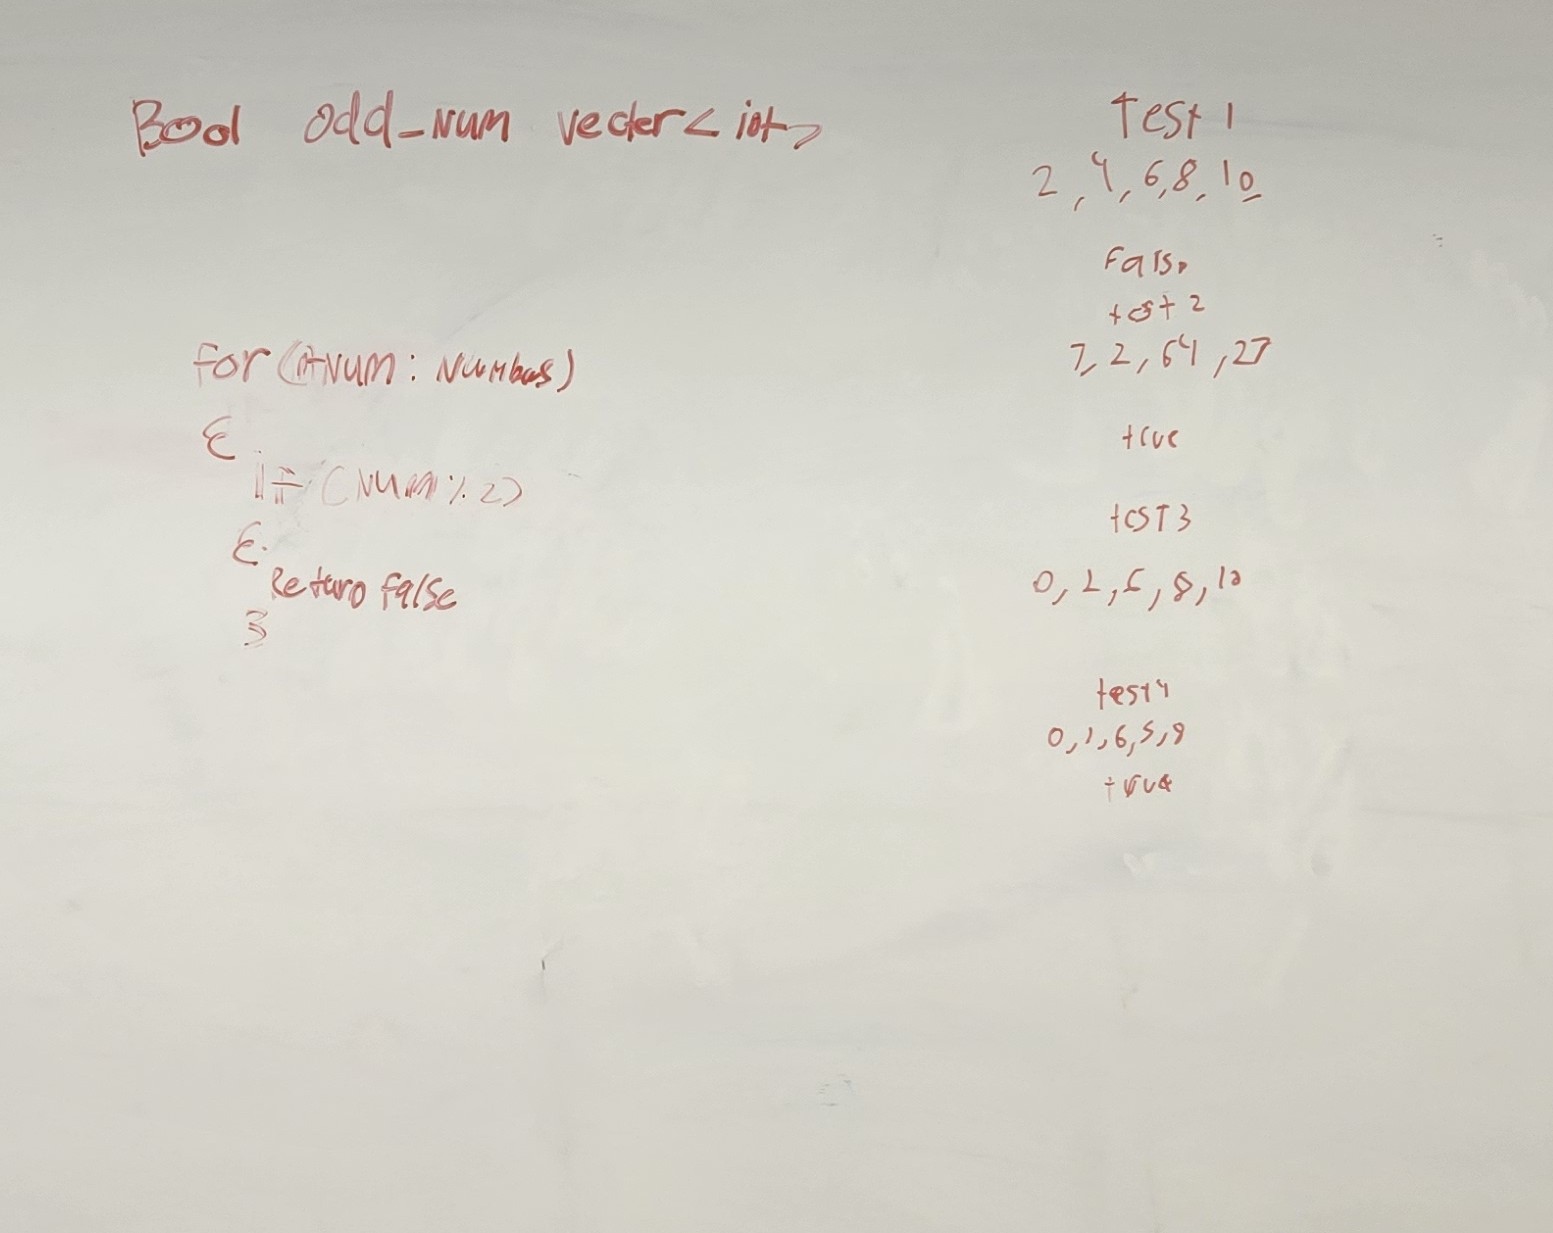 Bool odd_num vector<int>
for (int num : Numbers)
{
if (num % 2)
{
Return false
}
Test 1
2, 4, 6, 8, 10
False
test 2
7, 2, 64, 27
true
test 3
0, 2, 6, 8, 10
test 4
0, 1, 6, 5, 8
true